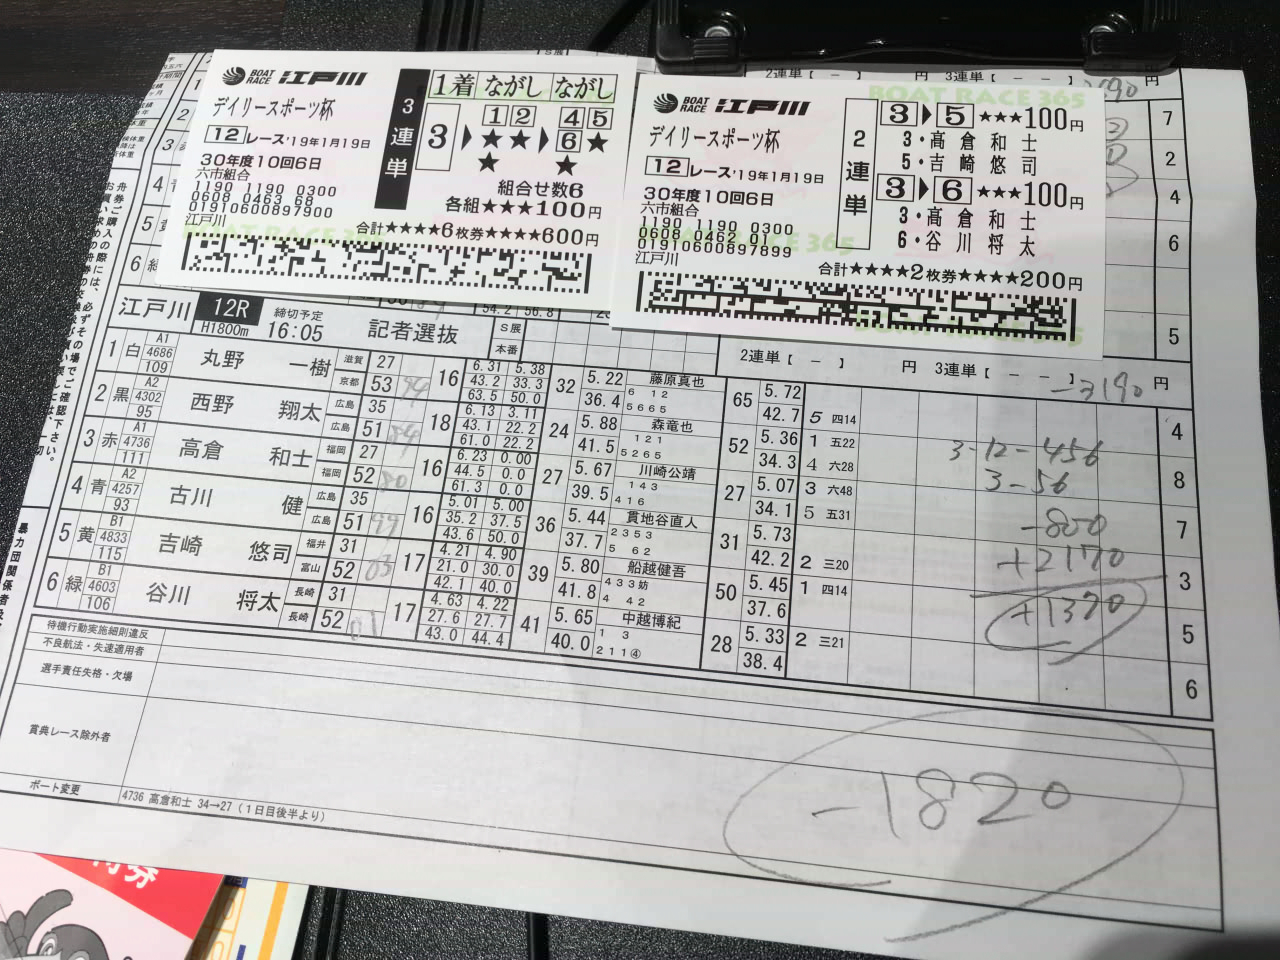 BOAT RACE 江戸川
デイリースポーツ杯
12 レース '19年1月19日
30年度10回6日
六市組合
1190 1190 0300
0608 0463 68
01910600897900
江戸川
3連単
1着 ながし ながし
1 2 4 5
3 ▶ ★★ ▶ 6 ★
★ ★
組合せ数6
各組★★★100円
合計★★★★6枚券★★★★600円
BOAT RACE 江戸川
デイリースポーツ杯
12 レース '19年1月19日
30年度10回6日
六市組合
1190 1190 0300
0608 0462 01
01910600897899
江戸川
2連単
BOAT RACE 365
3 ▶ 5 ★★★100円
3・高倉和士
5・吉崎悠司
3 ▶ 6 ★★★100円
3・高倉和士
6・谷川将太
合計★★★★2枚券★★★★200円
2連単【 － 】 円 3連単【 － － 】 円
7
2
4
6
5
江戸川 12R H1800m 締切予定 16:05 記者選抜 S展 本番
2連単【 － 】 円 3連単【 － － 】 -3190 円
1 白 A1 4686 109 丸野 一樹 滋賀 京都 27 53 16 6.31 5.38 43.2 33.3 63.5 50.0 32 5.22 36.4 藤原真也 6 12 5665 65 5.72 42.7 5 四14 4
2 黒 A2 4302 95 西野 翔太 広島 広島 35 51 18 6.13 3.11 43.1 22.2 61.0 22.2 24 5.88 41.5 森竜也 121 5265 52 5.36 34.3 1 五22 4 六28 8
3 赤 A1 4736 111 高倉 和士 福岡 福岡 27 52 80 16 6.23 0.00 44.5 0.0 61.3 0.0 27 5.67 39.5 川崎公靖 143 416 27 5.07 34.1 3 六48 5 五31 7
4 青 A2 4257 93 古川 健 広島 広島 35 51 16 5.01 5.00 35.2 37.5 43.6 50.0 36 5.44 37.7 貫地谷直人 2353 5 62 31 5.73 42.2 2 三20 3
5 黄 B1 4833 115 吉崎 悠司 福井 富山 31 52 03 17 4.21 4.90 21.0 30.0 42.1 40.0 39 5.80 41.8 船越健吾 433妨 4 42 50 5.45 37.6 1 四14 5
6 緑 B1 4603 106 谷川 将太 長崎 長崎 31 52 17 4.63 4.22 27.6 27.7 43.0 44.4 41 5.65 40.0 中越博紀 1 3 211④ 28 5.33 38.4 2 三21 6
3-12-456
3-56
-800
+2170
+1370
待機行動実施細則違反
不良航法・失速適用者
選手責任失格・欠場
賞典レース除外者
-1820
ボート変更 4736 高倉和士 34→27(1日目後半より)